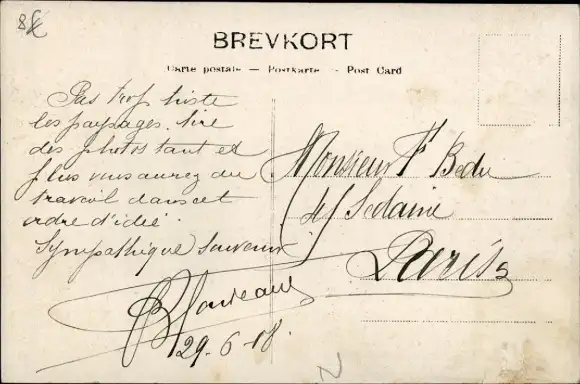 8£
BREVKORT
Carte postale — Postkarte — Post Card
Pas trop triste
les paysages. tire
des photos tant et
plus vous aurez du
travail dans cet
ordre d'idée.
Sympathique souvenir
29-6-08.
Monsieur Ft Bedu
Sedaine
Paris